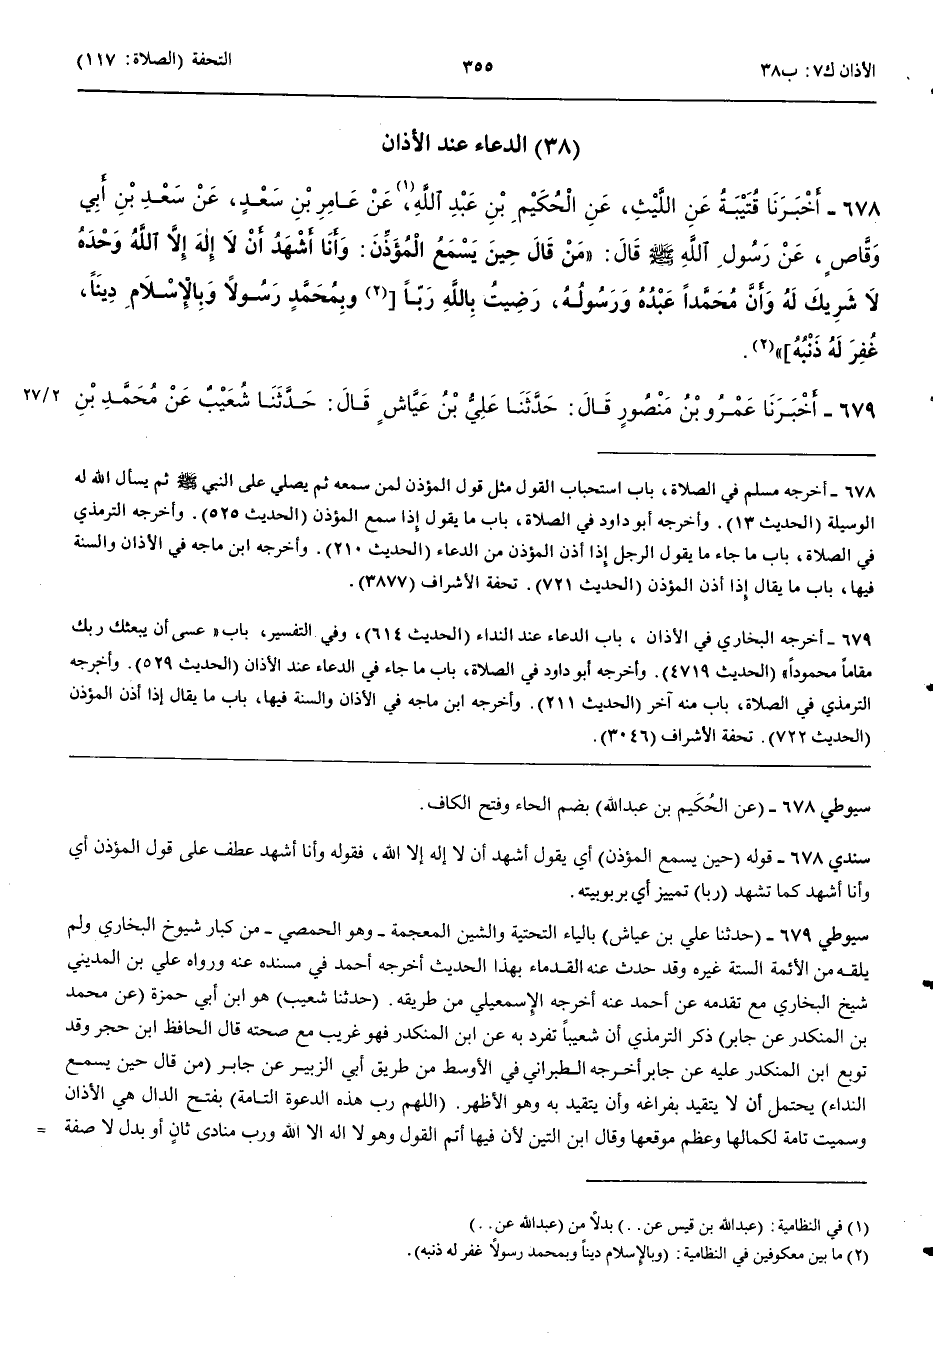 الأذان ك٧: ب٣٨ ٣٥٥ التحفة (الصلاة: ١١٧)
(٣٨) الدعاء عند الأذان
٦٧٨ - أَخْبَرَنَا قُتَيْبَةُ عَنِ اللَّيْثِ، عَنِ الْحُكَيْمِ بْنِ عَبْدِ ٱللَّهِ(١)، عَنْ عَامِرِ بْنِ سَعْدٍ، عَنْ سَعْدِ بْنِ أَبِي
وَقَّاصٍ، عَنْ رَسُولِ ٱللَّهِ ﷺ قَالَ: «مَنْ قَالَ حِينَ يَسْمَعُ الْمُؤَذِّنَ: وَأَنَا أَشْهَدُ أَنْ لَا إِلٰهَ إِلَّا اللَّهُ وَحْدَهُ
لَا شَرِيكَ لَهُ وَأَنَّ مُحَمَّداً عَبْدُهُ وَرَسُولُهُ، رَضِيتُ بِاللَّهِ رَبّاً [(٢) وبِمُحَمَّدٍ رَسُولاً وَبِالإِسْلَامِ دِيناً،
غُفِرَ لَهُ ذَنْبُهُ]»(٢).
٦٧٩ - أَخْبَرَنَا عَمْرُو بْنُ مَنْصُورٍ قَالَ: حَدَّثَنَا عَلِيُّ بْنُ عَيَّاشٍ قَالَ: حَدَّثَنَا شُعَيْبٌ عَنْ مُحَمَّدِ بْنِ ٢٧/٢
٦٧٨ - أخرجه مسلم في الصلاة، باب استحباب القول مثل قول المؤذن لمن سمعه ثم يصلي على النبي ﷺ ثم يسأل الله له
الوسيلة (الحديث ١٣). وأخرجه أبو داود في الصلاة، باب ما يقول إذا سمع المؤذن (الحديث ٥٢٥). وأخرجه الترمذي
في الصلاة، باب ما جاء ما يقول الرجل إذا أذن المؤذن من الدعاء (الحديث ٢١٠). وأخرجه ابن ماجه في الأذان والسنة
فيها، باب ما يقال إذا أذن المؤذن (الحديث ٧٢١). تحفة الأشراف (٣٨٧٧).
٦٧٩ - أخرجه البخاري في الأذان ، باب الدعاء عند النداء (الحديث ٦١٤)، وفي التفسير، باب« عسى أن يبعثك ربك
مقاماً محموداً» (الحديث ٤٧١٩). وأخرجه أبو داود في الصلاة، باب ما جاء في الدعاء عند الأذان (الحديث ٥٢٩). وأخرجه
الترمذي في الصلاة، باب منه آخر (الحديث ٢١١). وأخرجه ابن ماجه في الأذان والسنة فيها، باب ما يقال إذا أذن المؤذن
(الحديث ٧٢٢). تحفة الأشراف (٣٠٤٦).
سيوطي ٦٧٨ - (عن الحُكَيم بن عبدالله) بضم الحاء وفتح الكاف.
سندي ٦٧٨ - قوله (حين يسمع المؤذن) أي يقول أشهد أن لا إله إلا الله، فقوله وأنا أشهد عطف على قول المؤذن أي
وأنا أشهد كما تشهد (ربا) تمييز أي بربوبيته.
سيوطي ٦٧٩ - (حدثنا علي بن عياش) بالياء التحتية والشين المعجمة - وهو الحمصي - من كبار شيوخ البخاري ولم
يلقه من الأئمة الستة غيره وقد حدث عنه القدماء بهذا الحديث أخرجه أحمد في مسنده عنه ورواه علي بن المديني
شيخ البخاري مع تقدمه عن أحمد عنه أخرجه الإسمعيلي من طريقه. (حدثنا شعيب) هو ابن أبي حمزة (عن محمد
بن المنكدر عن جابر) ذكر الترمذي أن شعيباً تفرد به عن ابن المنكدر فهو غريب مع صحته قال الحافظ ابن حجر وقد
توبع ابن المنكدر عليه عن جابر أخرجه الطبراني في الأوسط من طريق أبي الزبير عن جابر (من قال حين يسمع
النداء) يحتمل أن لا يتقيد بفراغه وأن يتقيد به وهو الأظهر. (اللهم رب هذه الدعوة التامة) بفتح الدال هي الأذان
وسميت تامة لكمالها وعظم موقعها وقال ابن التين لأن فيها أتم القول وهو لا اله الا الله ورب منادى ثانٍ أو بدل لا صفة =
(١) في النظامية: (عبدالله بن قيس عن..) بدلاً من (عبدالله عن..)
(٢) ما بين معكوفين في النظامية: (وبالإسلام ديناً وبمحمد رسولاً غفر له ذنبه).